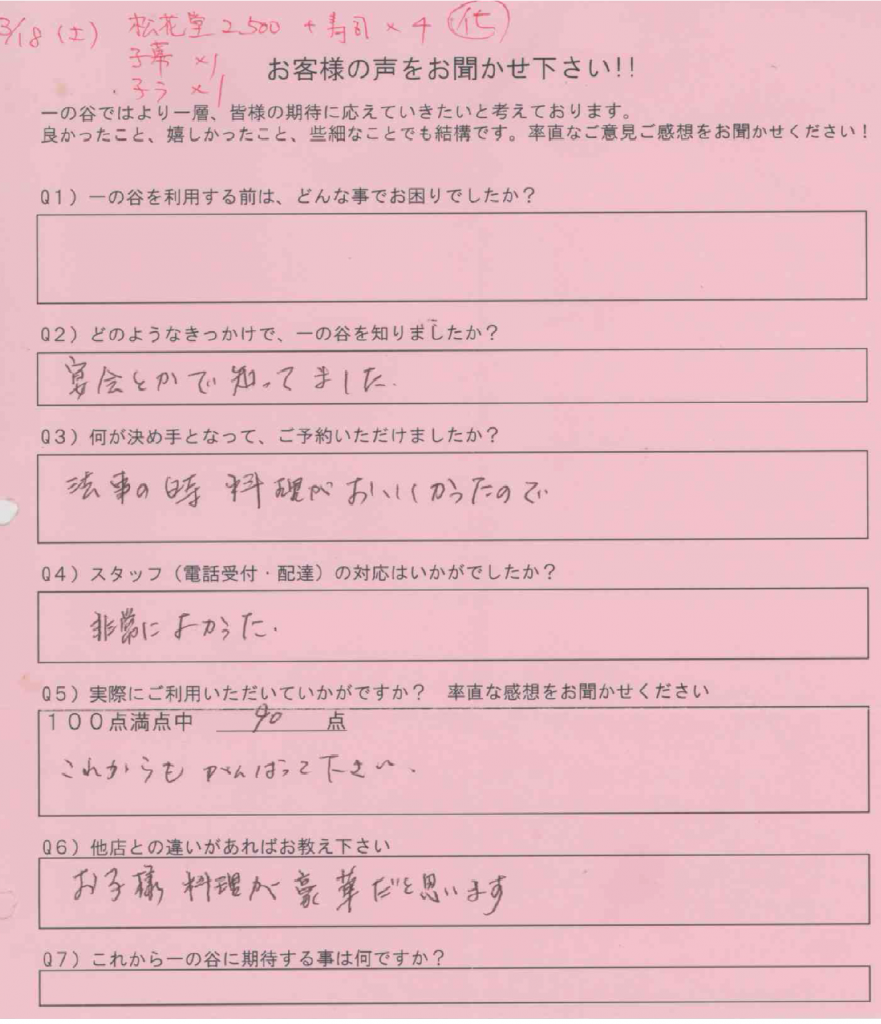 3/18(土) 松花堂 2,500 + 寿司 × 4
×1
×1
お客様の声をお聞かせ下さい!!
一の谷ではより一層、皆様の期待に応えていきたいと考えております。
良かったこと、嬉しかったこと、些細なことでも結構です。率直なご意見ご感想をお聞かせください!
Q1)一の谷を利用する前は、どんな事でお困りでしたか?
Q2)どのようなきっかけで、一の谷を知りましたか?
宴会とかで知ってました.
Q3)何が決め手となって、ご予約いただけましたか?
法事の時 料理がおいしかったので
Q4)スタッフ(電話受付・配達)の対応はいかがでしたか?
非常によかった.
Q5)実際にご利用いただいていかがですか? 率直な感想をお聞かせください
100点満点中 90 点
これからもがんばって下さい.
Q6)他店との違いがあればお教え下さい
お子様料理が豪華だと思います
Q7)これから一の谷に期待する事は何ですか?